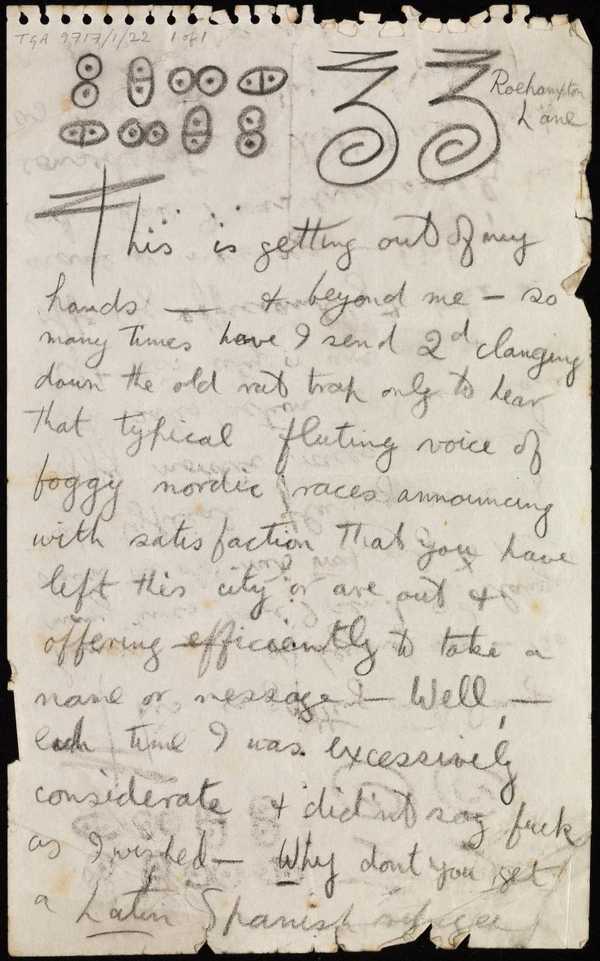 TGA 9717/1/22 1 of 1
33
Roehampton
Lane
This is getting out of my
hands — & beyond me – so
many times have I send 2d clanging
down the old rat trap only to hear
that typical fluting voice of
foggy nordic races announcing
with satisfaction that you have
left this city or are out &
offering efficiently to take a
name or message! — Well, —
each time I was excessively
considerate & did'nt say fuck
as I wished — Why dont you get
a Latin Spanish refugee